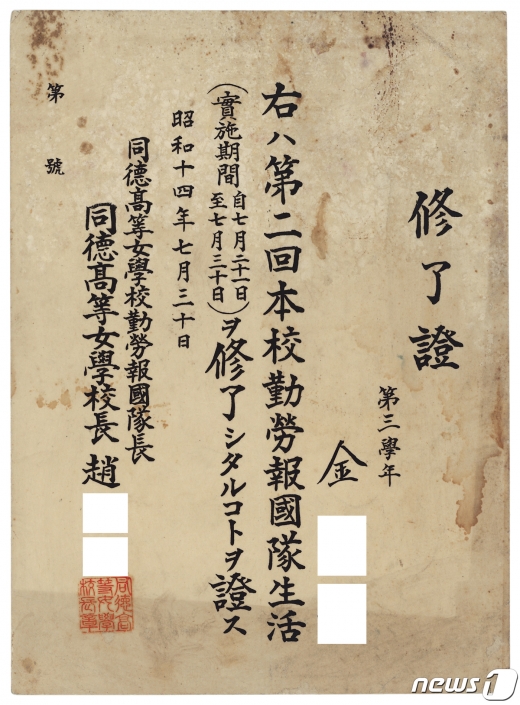 修了證
第三學年
金
右ハ第二回本校勤勞報國隊生活
(實施期間 自七月二十一日 至七月三十日)ヲ修了シタルコトヲ證ス
昭和十四年七月三十日
同德高等女學校勤勞報國隊長
同德高等女學校長 趙
第 號
同德高等女學校長章
news1